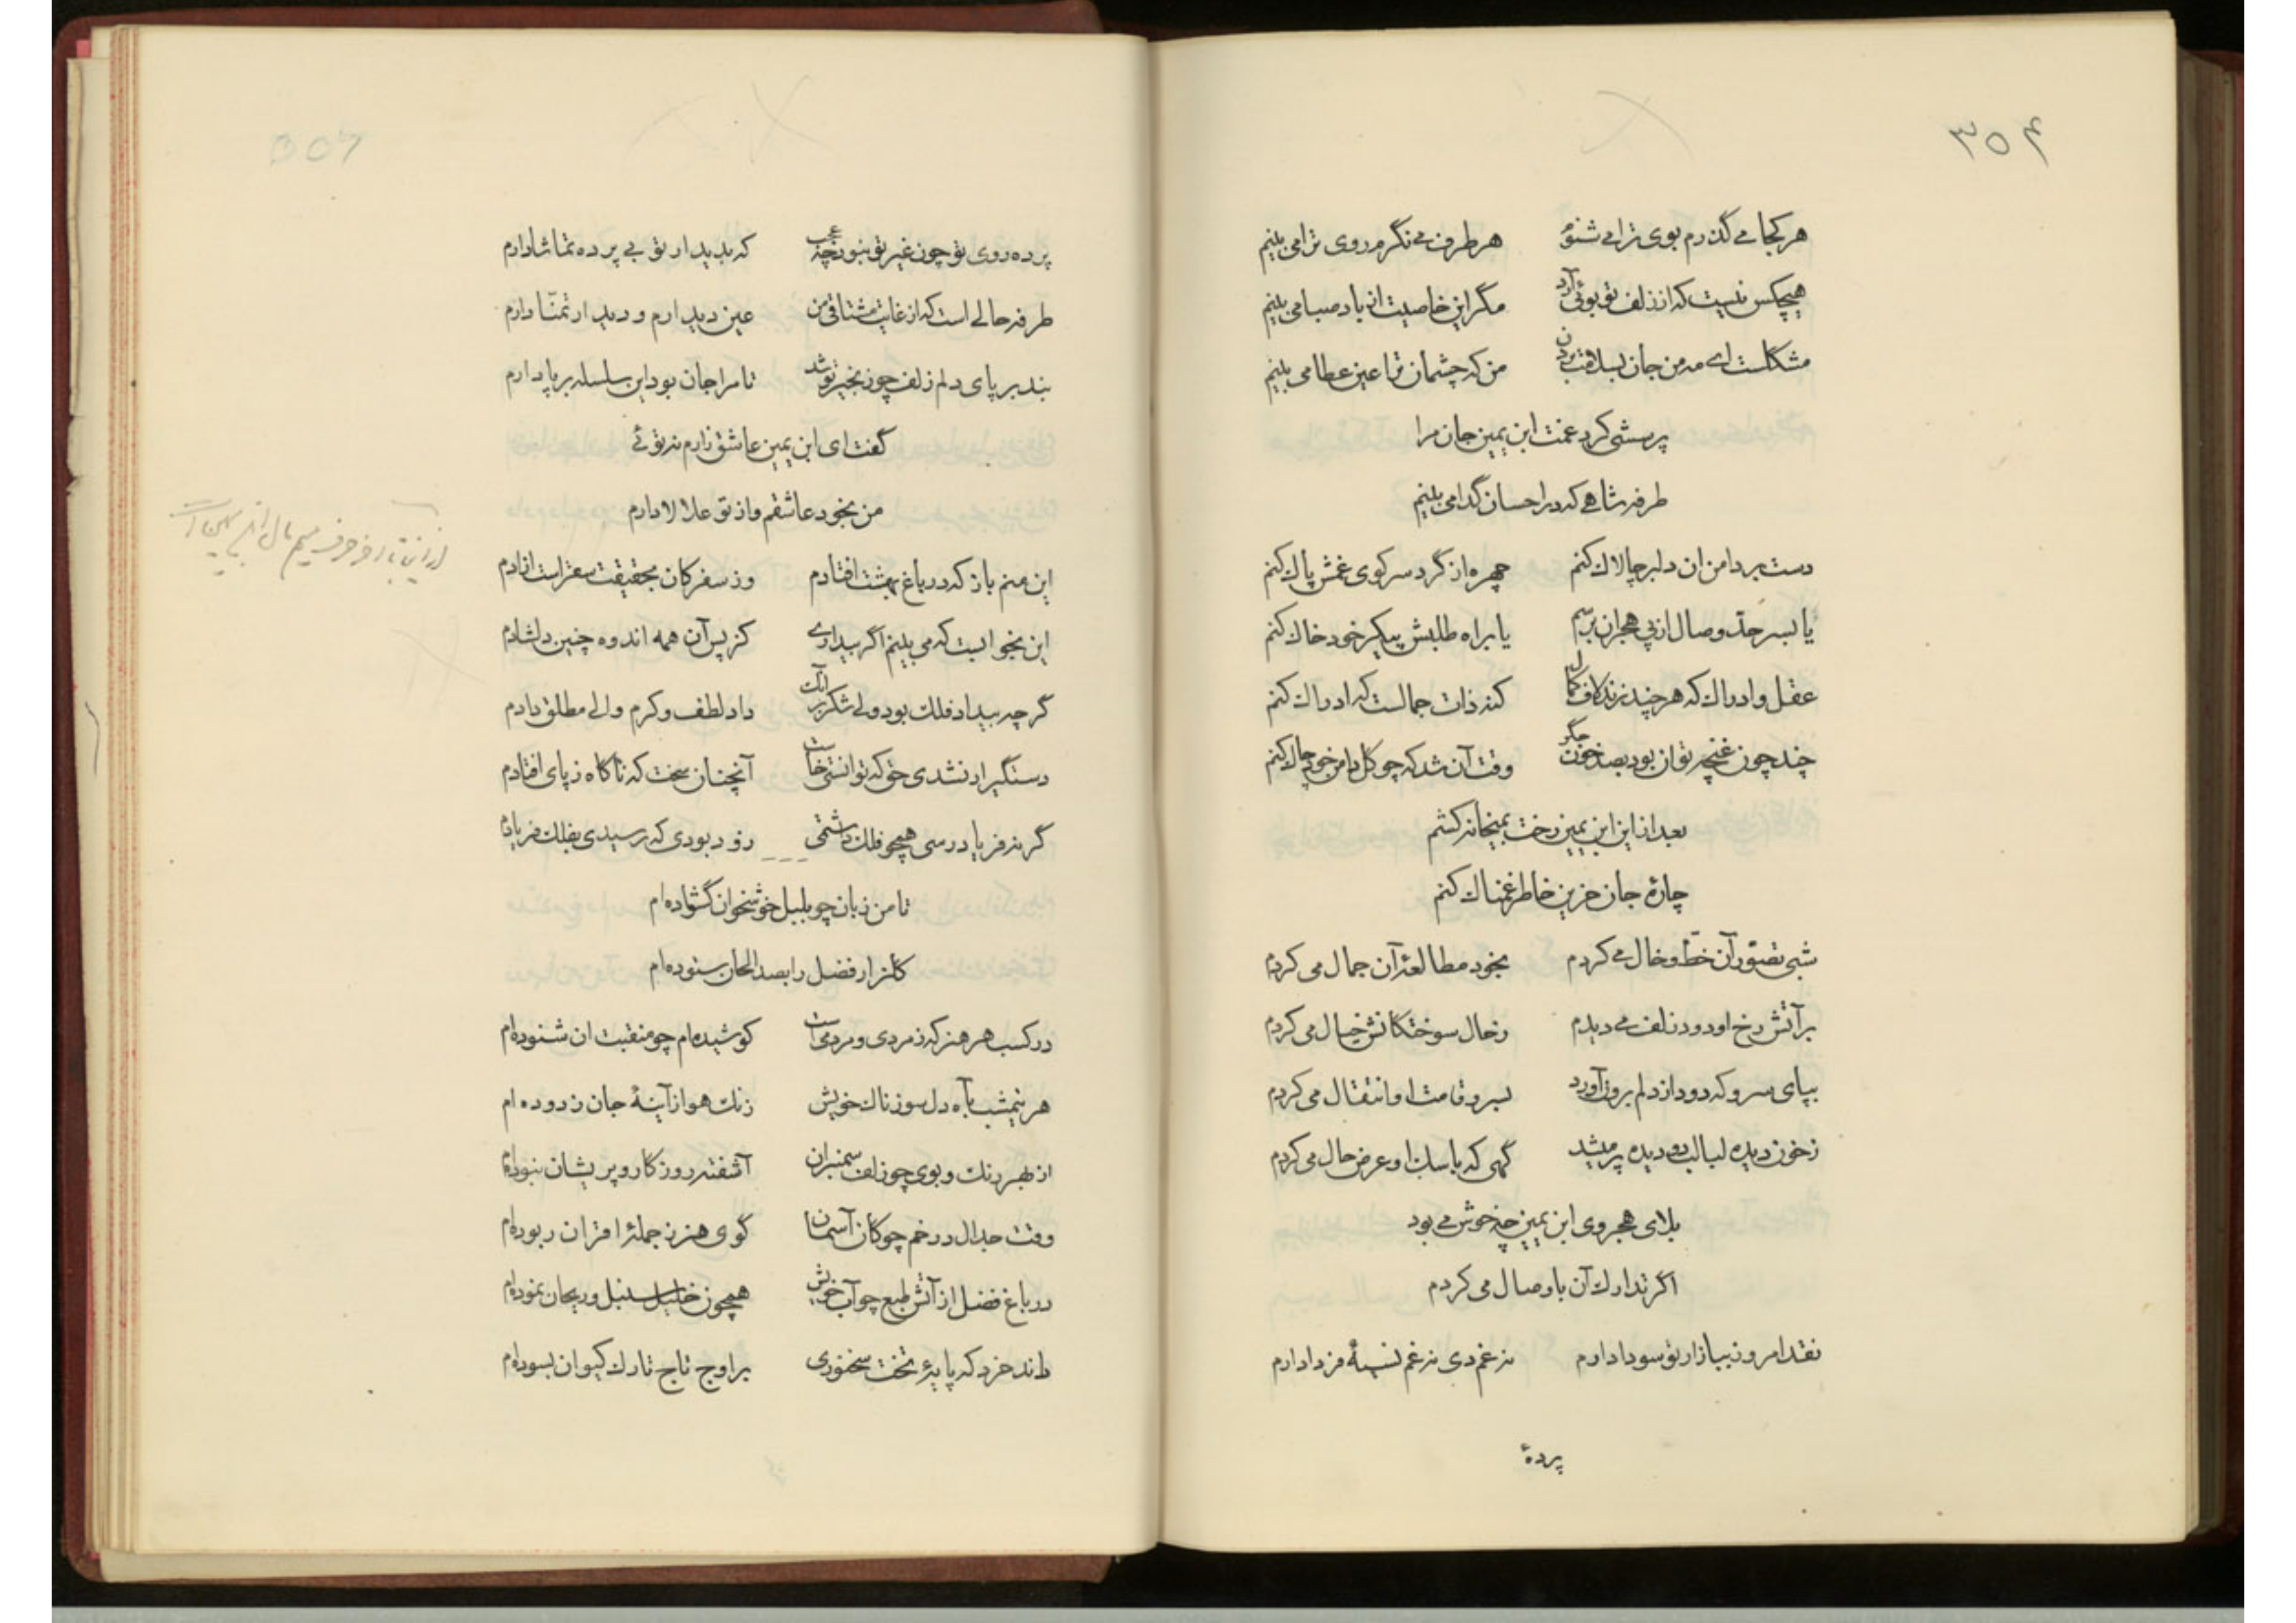 ۳۵۴
هر کجا می گذرم بوی ترا می شنوم هر طرف می نگرم روی ترا می بینم
هیچکس نیست که از زلف تو بوئی آرد مگر این خاصیت از باد صبا می بینم
مشکلست ای مه من جان بسلامت بردن من که چشمان ترا عین عطا می بینم
پرسشی کرد غمت ابن یمین جان مرا
طرفه شاهی که در احسان گدا می بینم
دست بر دامن ان دلبر چالاک کنم چهره از گرد سر کوی غمش پاک کنم
یا بسر حد وصال از پی هجران برسم یا براه طلبش پیکر خود خاک کنم
عقل و ادراک که هر چند زند لاف کمال کنه ذات جمالست که ادراک کنم
چند چون غنچه توان بود بصد خون جگر وقت آن شد که چو گل دامن خود چاک کنم
بعد از این ابن یمین رخت بمیخانه کشم
چارهٔ جان حزین خاطر غمناک کنم
شبی تصور آن خط و خال می کردم بخود مطالعهٔ آن جمال می کردم
بر آتش رخ او دود زلف می دیدم ز خال سوختگانش خیال می کردم
بپای سرو که دود از دلم برون آورد بسرو قامت او انتقال می کردم
ز خون دیده لبالب دو دیده پر میشد گهی که با سگ او عرض حال می کردم
بلای هجر وی ابن یمین چه خوش می بود
اگر تدارک آن با وصال می کردم
نقد امروز ببازار تو سودا دارم نه غم دی نه غم نسیهٔ فردا دارم
پردهٔ
پرده روی تو چون غیر تو نبود چه عجب که بدیدار تو بی پرده تماشا دارم
طرفه حالی است که از غایت مشتاقی من عین دیدارم و دیدار تمنّا دارم
بند بر پای دلم زلف چو زنجیر تو شد تا مرا جان بود این سلسله بر پا دارم
گفت ای ابن یمین عاشق زارم نه توئی
من بخود عاشقم و از تو علالا دارم
این منم باز که در باغ بهشت افتادم وز سفر کان بحقیقت سقر است ازادم
این بخوابست که می بینم اگر بیداری کز پس آن همه اندوه چنین دلشادم
گر چه بیداد فلک بود ولی شکر بر آنک داد لطف و کرم والی مطلق دادم
دستگیر ار نشدی حق که توانستی خاست آنچنان سخت که ناگاه ز پای افتادم
گر نه فریادرسی همچو فلک داشتمی زود بودی که رسیدی بفلک فریادم
تا من زبان چو بلبل خوشخوان گشوده ام
گلزار فضل را بصد الحان ستوده ام
در کسب هر هنر که ز مردی و مردمی است کوشیده ام چو منقبت ان شنوده ام
هر نیمشب بآه دل سوزناک خویش زنگ هوا ز آینهٔ جان زدوده ام
از بهر رنگ و بوی چو زلف سمنبران آشفته روزگار و پریشان نبوده ام
وقت جدال در خم چوگان آسمان گوی هنر ز جملهٔ اقران ربوده ام
در باغ فضل از آتش طبع چو آب خویش همچون خلیل سنبل و ریحان نموده ام
داند خرد که پایهٔ تخت سخنوری بر اوج تاج تارک کیوان بسوده ام